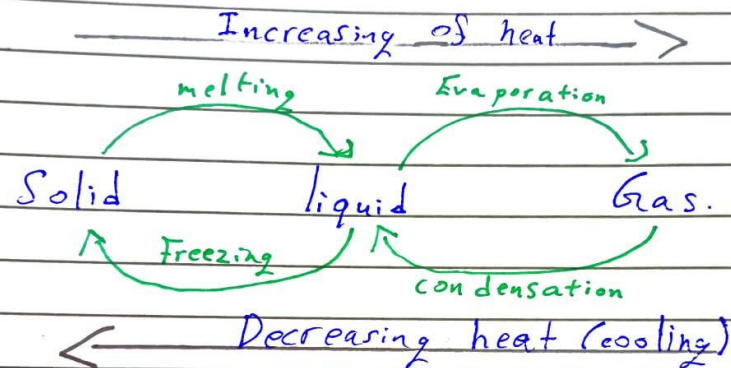 Increasing of heat
melting Evaporation
Solid liquid Gas.
Freezing condensation
Decreasing heat (cooling)